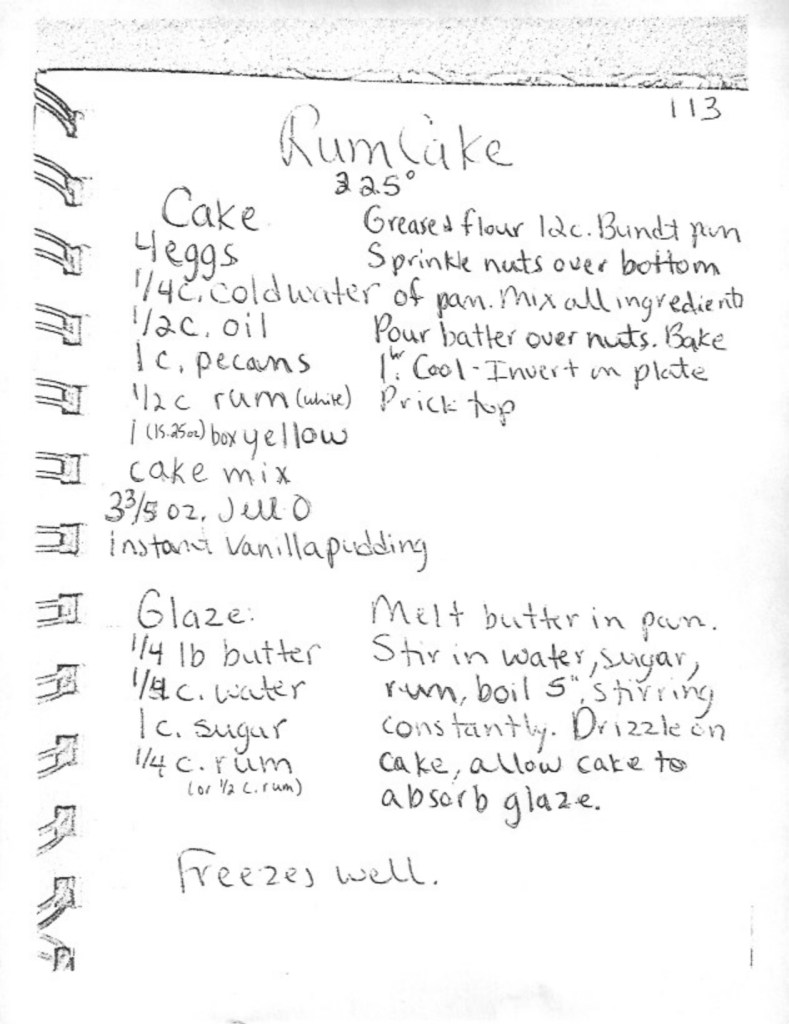 113
Rum Cake
325°
Cake
4 eggs
1/4 c. cold water
1/2 c. oil
1 c. pecans
1/2 c rum (white)
1 (15.25oz) box yellow
cake mix
3 3/5 oz. Jell O
instant vanilla pudding
Grease & flour 12c. Bundt pan
Sprinkle nuts over bottom
of pan. Mix all ingredients
Pour batter over nuts. Bake
1 hr. Cool - Invert on plate
Prick top
Glaze:
1/4 lb butter
1/4 c. water
1 c. sugar
1/4 c. rum
(or 1/2 c. rum)
Melt butter in pan.
Stir in water, sugar,
rum, boil 5", stirring
constantly. Drizzle on
cake, allow cake to
absorb glaze.
Freezes well.